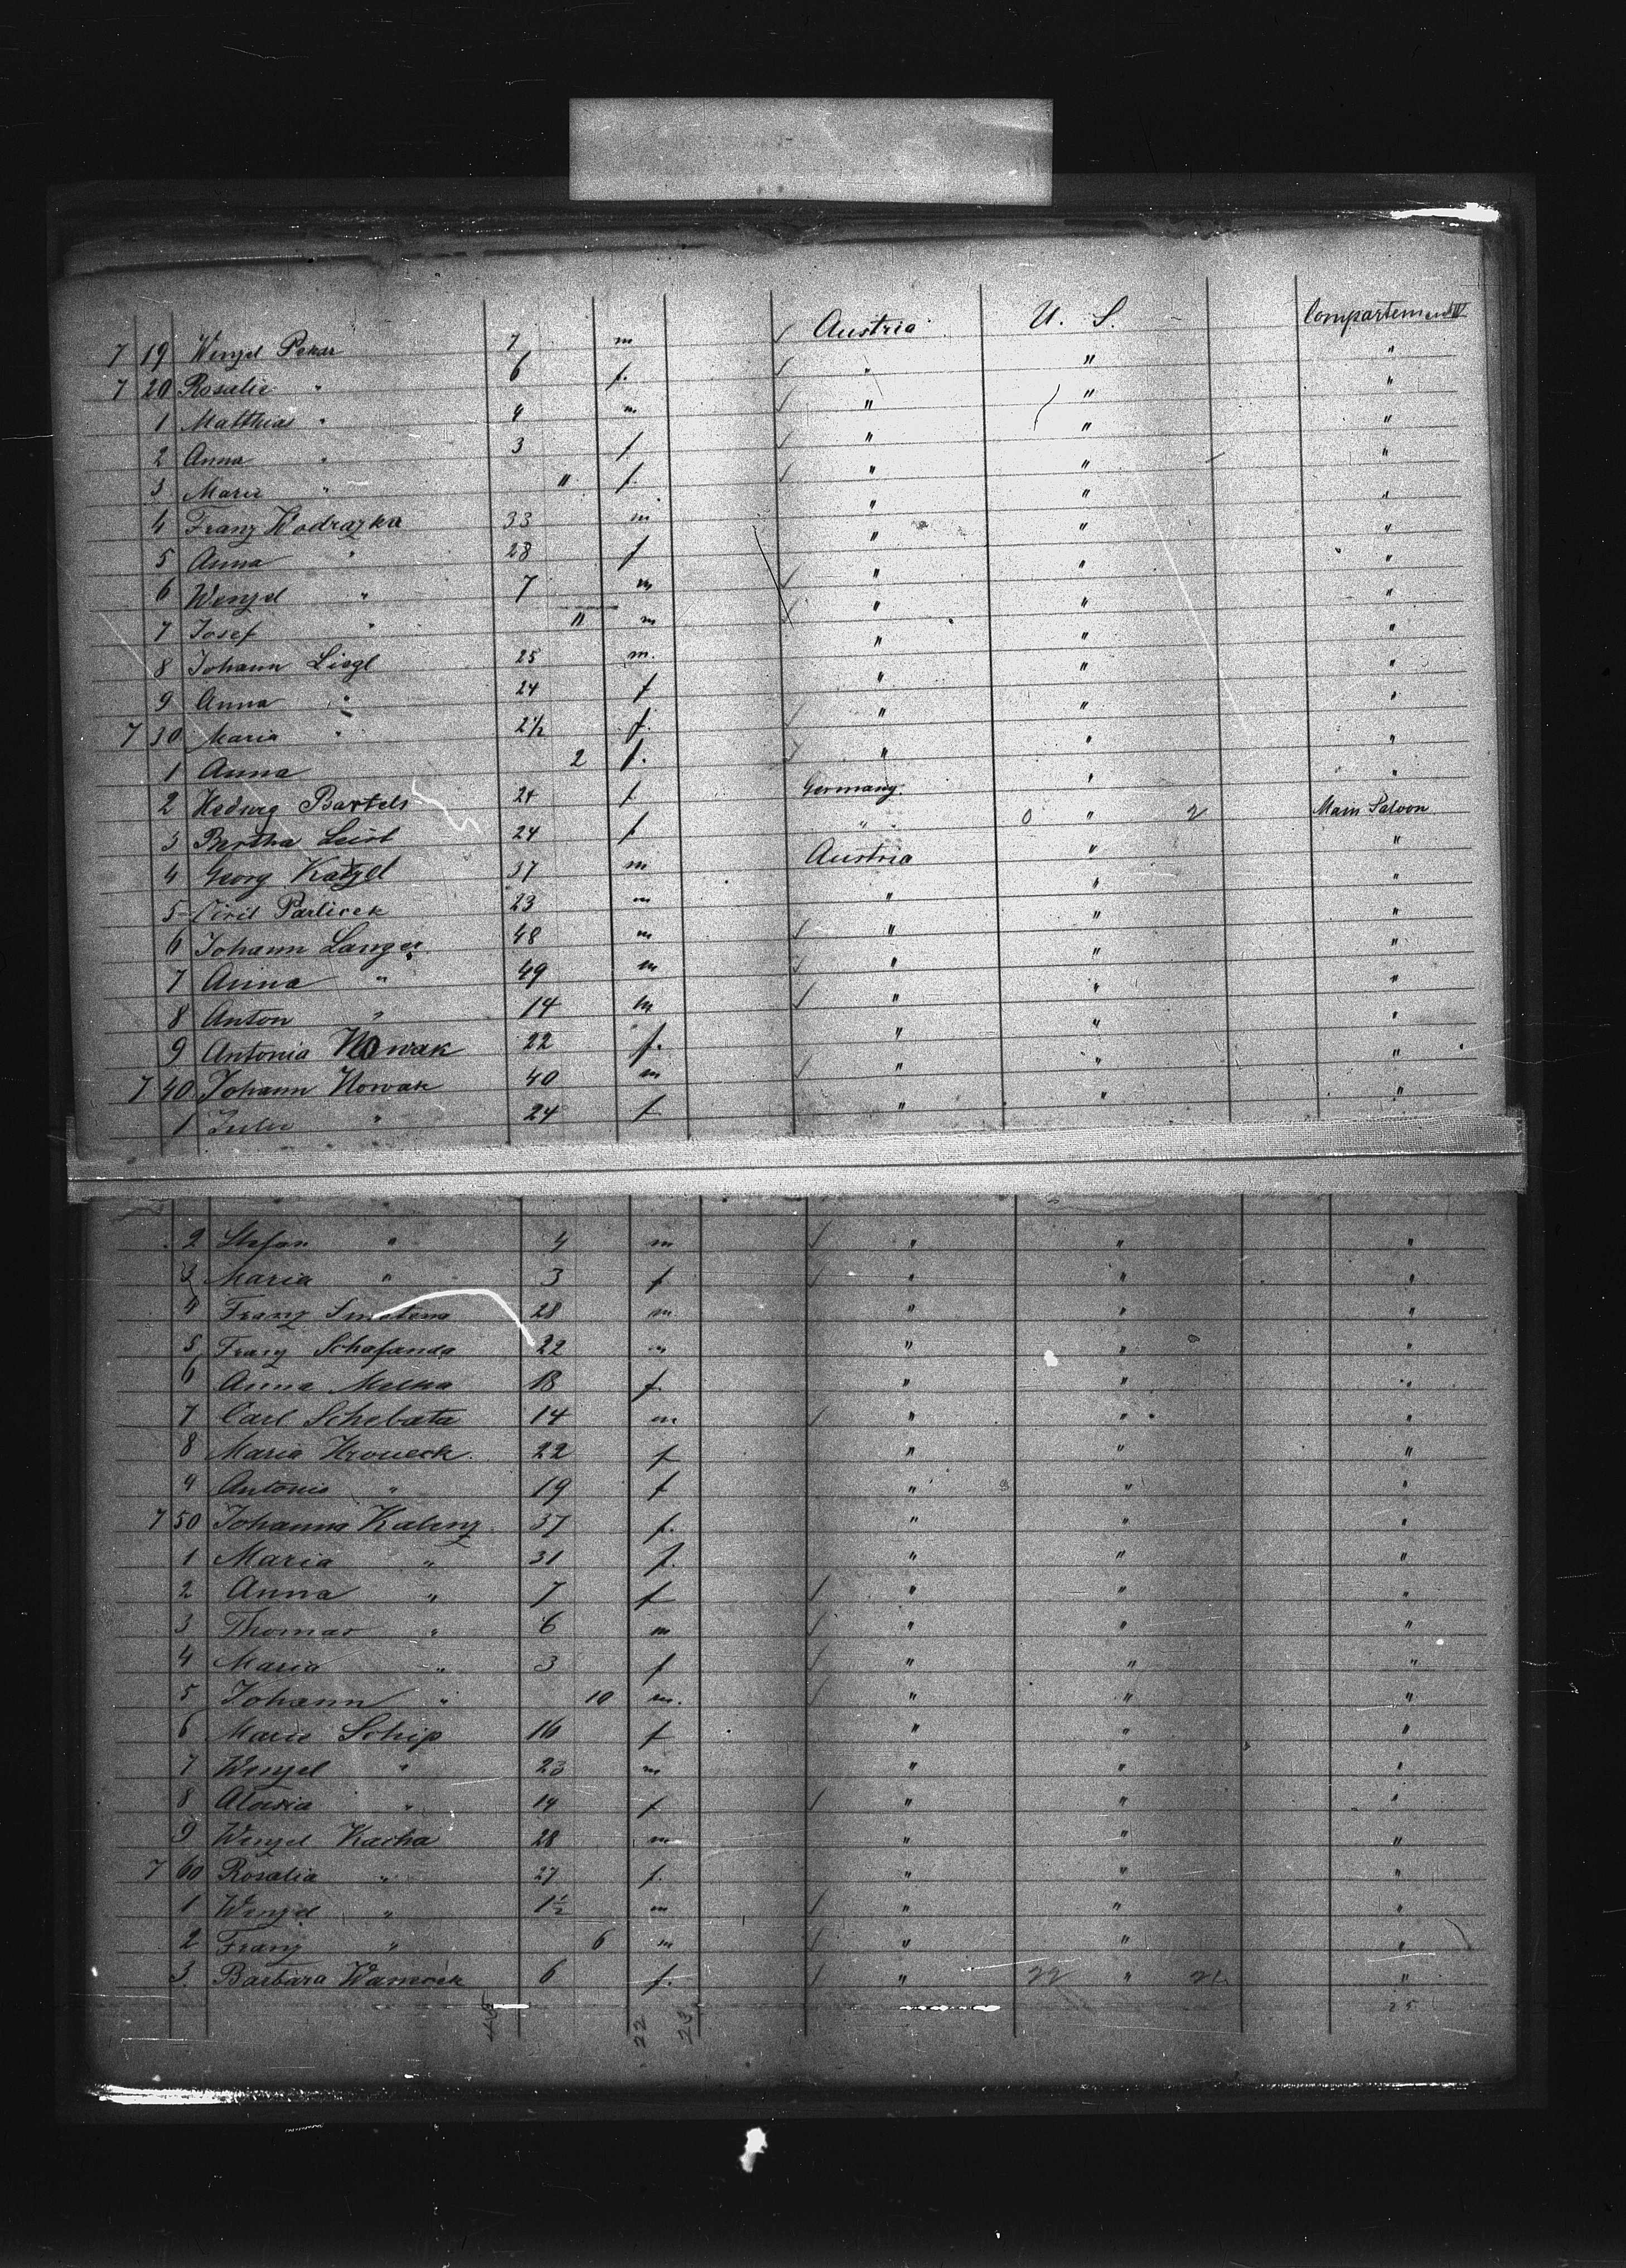 7 19 Wenzel Pekar 7 m Austria U. S. Compartement IV
7 20 Rosalie " 6 f. " " "
1 Matthias " 4 m " " "
2 Anna " 3 f " " "
3 Marie " 11 f. " " "
4 Franz Wodrazka 33 m " " "
5 Anna " 28 f " " "
6 Wenzel " 7 m " " "
7 Josef " 11 m " " "
8 Johann Liegl 25 m. " " "
9 Anna " 24 f " " "
7 30 Maria " 2½ f. " " "
1 Anna 2 f. " " "
2 Hedwig Bartels 24 f Germany " "
3 Bertha 24 f " 0 " 2 Main Saloon
4 Georg Katzel 37 m Austria " "
5 Ciril Parlicek 23 m " " "
6 Johann Langer 48 m " " "
7 Anna " 49 m " " "
8 Anton " 14 m " " "
9 Antonia Nowak 22 f. " " "
7 40 Johann Nowak 40 m " " "
1 Julie " 24 f " " "
2 Stefan " 4 m " " "
3 Maria " 3 f " " "
4 Franz Smetena 28 m " " "
5 Franz Schafanda 22 m " " "
6 Anna Melka 18 f. " " "
7 Carl Schebata 14 m " " "
8 Maria Hroueck 22 f " " "
9 Antonie " 19 f " " "
7 50 Johanna Kalenz 37 f. " " "
1 Maria " 31 f. " " "
2 Anna " 7 f " " "
3 Thomas " 6 m " " "
4 Maria " 3 f " " "
5 Johann " 10 m. " " "
6 Marie Schip 16 f " " "
7 Wenzel " 23 m " " "
8 Aloisia " 14 f " " "
9 Wenzel Kacha 28 m " " "
7 60 Rosalia " 27 f. " " "
1 Wenzel " 1½ m " " "
2 Franz " 6 m " " "
3 Barbara 6 f. " 22 " "
25
45 22 23